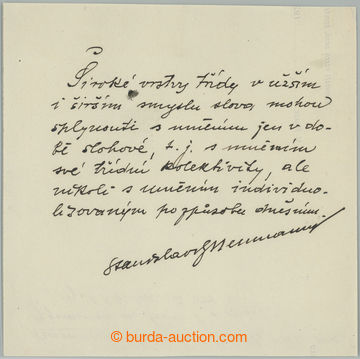 Široké vrstvy třídy v užším
i širším smyslu slova mohou
splynouti s uměním jen v do-
bě slohové, t. j. s uměním
své třídní kolektivity, ale
nikoli s uměním individuo-
lisovaným po způsobu dnešním.
Stanislav K Neumann
© burda-auction.com